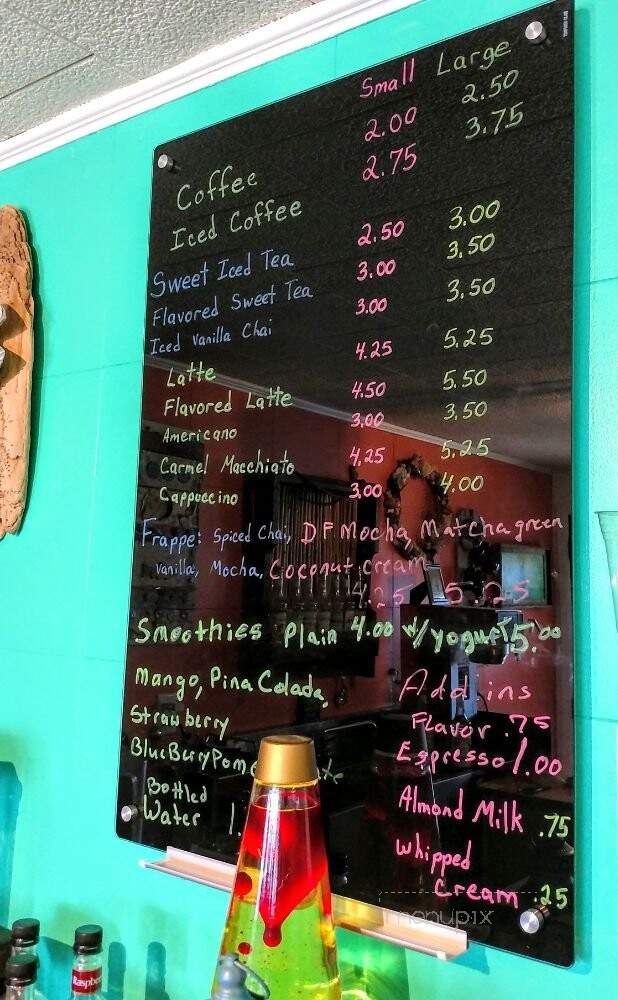 Small Large
Coffee 2.00 2.50
Iced Coffee 2.75 3.75
Sweet Iced Tea 2.50 3.00
Flavored Sweet Tea 3.00 3.50
Iced Vanilla Chai 3.00 3.50
Latte 4.25 5.25
Flavored Latte 4.50 5.50
Americano 3.00 3.50
Carmel Macchiato 4.25 5.25
Cappuccino 3.00 4.00
Frappe: Spiced Chai, DF Mocha, Matcha green
Vanilla, Mocha, Coconut cream
4.25 5.25
Smoothies Plain 4.00 w/yogurt 5.00
Mango, Pina Colada,
Strawberry
BlueBerry
Bottled
Water
Add ins
Flavor .75
Espresso 1.00
Almond Milk .75
Whipped
Cream .25
menupix